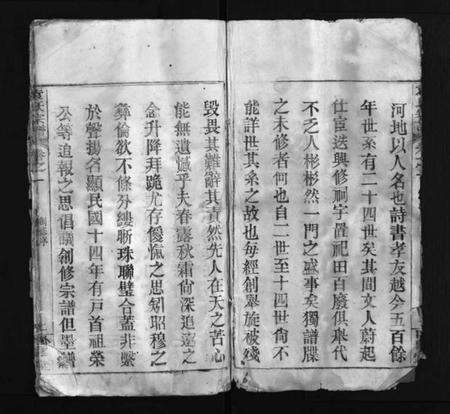 河地以人名也詩書孝友越今五百餘
年世系有二十四世矣其間文人蔚起
仕宦迭興修祠宇置祀田百廢俱舉代
不乏人彬彬然一門之盛事矣獨譜牒
之未修者何也自二世至十四世尙不
能詳世其系之故也每經創舉旋被殘
毀畏其難辭其責然先人在天之苦心
能無遺憾乎夫春露秋霜尙深追遠之
念升降拜跪尤存優愾之思矧昭穆之
彝倫欲不條分縷晰珠聯璧合蓋非繫
於聲揚名顯民國十四年有戸首祖榮
公等追報之思倡議創修宗譜但墨譜